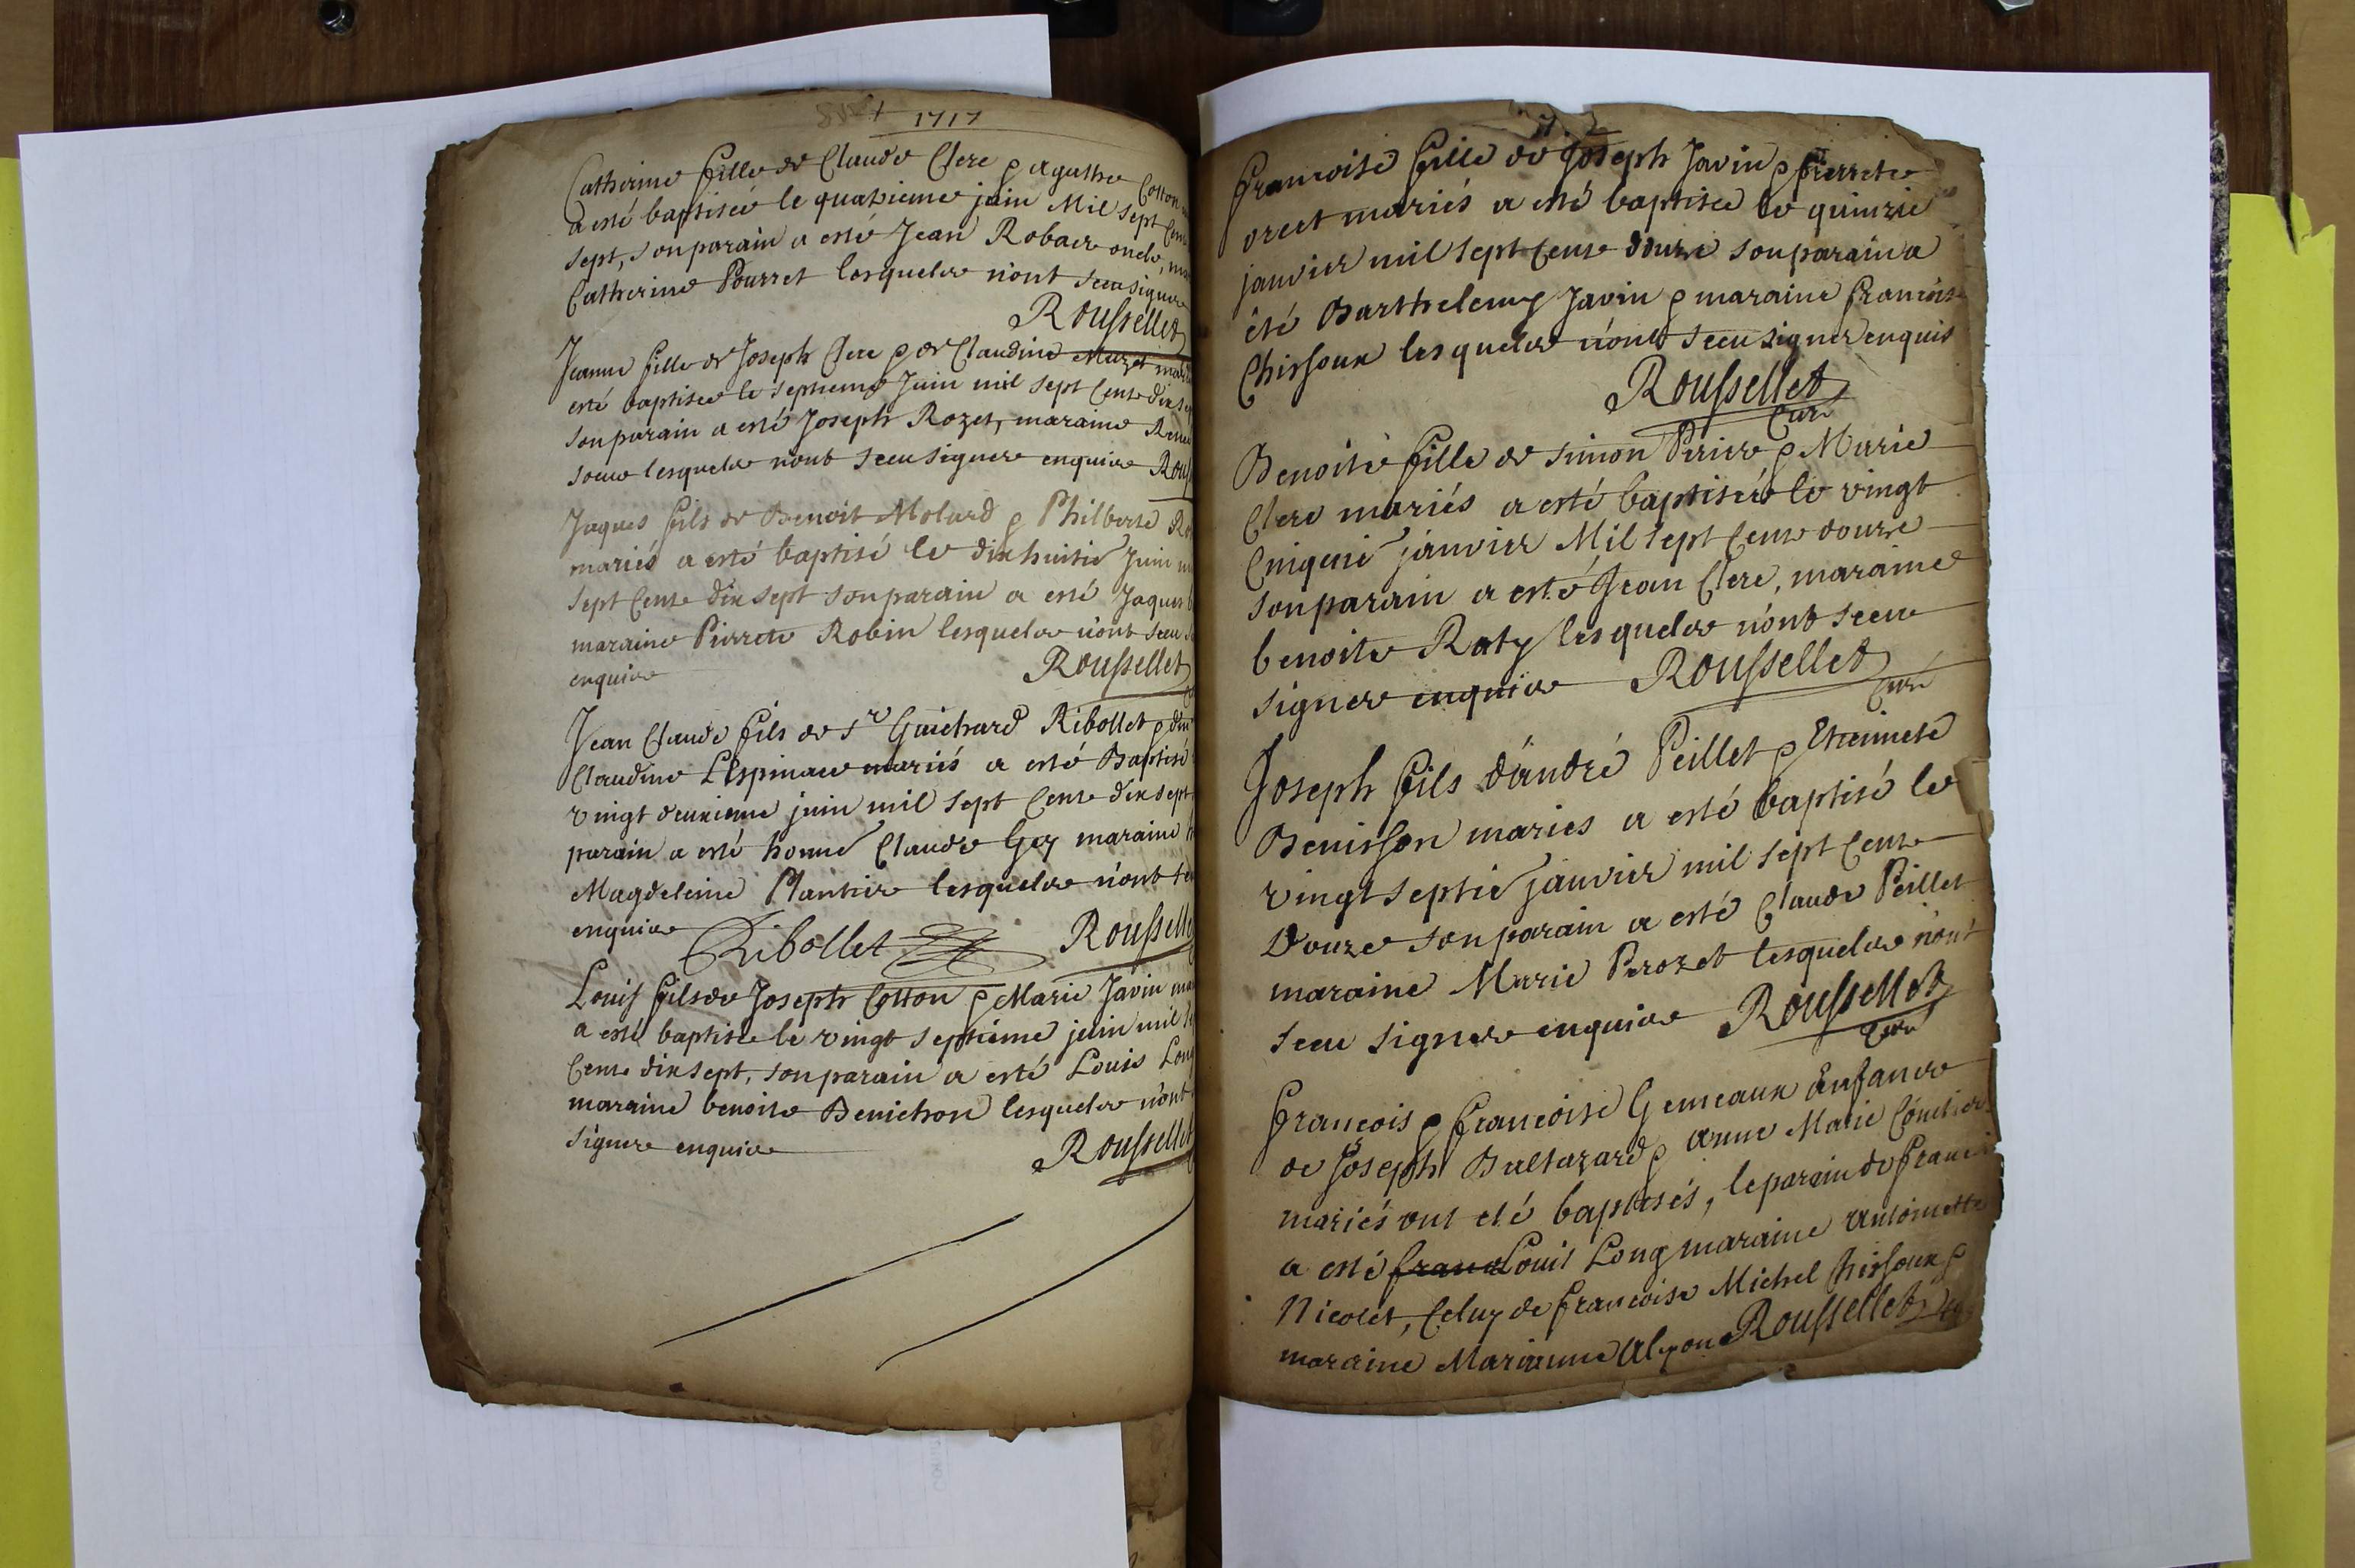 1717
Catherine fille de Claude Clere & Agathe Cotton
a esté baptisée le quatrieme juin Mil sept Cents
sept, son parain a esté Jean Robaee oncle,
Catherine Pourret lesquels n'ont sceu signer
Roussellet
Jeanne fille de Joseph Clere & de Claudine Muzet
esté baptisée le septieme Juin mil sept Cents dix
son parain a esté Joseph Rozet, maraine
lesquels n'ont sceu signer enquis
Jaques fils de Benoit Molard & Philberte
mariés a esté baptisé le dix huitie Juin
sept Cents dix sept son parain a esté Jaques
maraine Pierrete Robin lesquels n'ont sceu
enquis Roussellet
Jean Claude fils de Sr Guichard Ribollet &
Claudine L'Espinace mariés a esté Baptisé
vingt deuxieme juin mil sept Cents dix sept
parain a esté honné Claude Gey maraine
Magdeleine Plantier lesquels n'ont
enquis Ribollet Roussellet
Louis fils de Joseph Cotton & Marie Javin
a esté baptisé le vingt septieme juin mil
Cents dix sept, son parain a esté Louis Long
maraine benoite Benichon lesquels n'ont
signer enquis Roussellet
Francoise fille de Joseph Javin & Pierrete
oreet mariés a esté baptisée le quinzie
janvier mil sept Cents douze son parain a
été Barthelemy Javin & maraine francoise
Chissoux lesquels n'ont sceu signer enquis
Roussellet
Curé
Benoite fille de Simon Perier & Marie
Clere mariés a esté baptisée le vingt
Cinquie janvier Mil sept Cents douze
son parain a esté Jean Clere, maraine
benoite Raty lesquels n'ont sceu
signer enquis Roussellet
Curé
Joseph fils d'andré Peillet & Etiennete
Benisson mariés a esté baptisé le
vingt septie janvier mil sept Cents
Douze son parain a esté Claude Peillet
maraine Marie Perozet lesquels n'ont
sceu signer enquis Roussellet
Curé
Francois & francoise Gemeaux Enfans
de Joseph Baltazard & anne Marie
mariés ont eté baptisés, le parain de
a esté franc Louis Long maraine Antoinette
Nicolet, Celuy de francoise Michel Chissoux &
maraine Marianne Roussellet